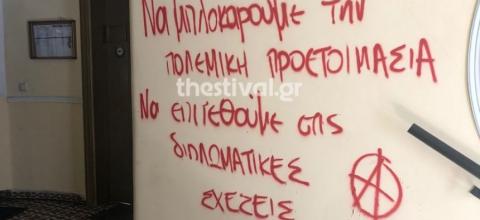 Να μπλοκάρουμε την
ΠΟΛΕΜΙΚΗ ΠΡΟΕΤΟΙΜΑΣΙΑ
thestival.gr
Να επιτεθουμε στις
ΔΙΠΛΩΜΑΤΙΚΕΣ
ΣΧΕΣΕΙΣ